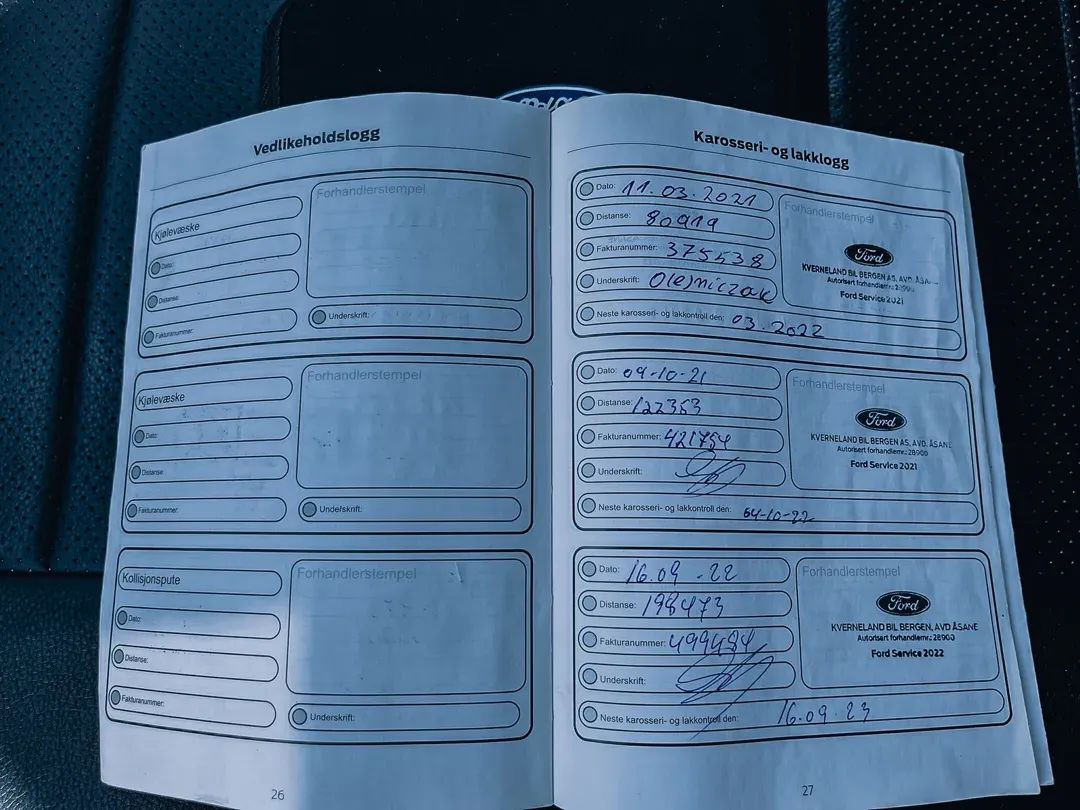 Vedlikeholdslogg
Kjølevæske
Dato:
Distanse:
Fakturanummer:
Forhandlerstempel
Underskrift:
Kjølevæske
Dato:
Distanse:
Fakturanummer:
Forhandlerstempel
Underskrift:
Kollisjonspute
Dato:
Distanse:
Fakturanummer:
Forhandlerstempel
Underskrift:
26
Karosseri- og lakklogg
Dato: 11.03.2021
Distanse: 80919
Fakturanummer: 375538
Underskrift: Olejniczak
Neste karosseri- og lakkontroll den: 03.2022
Forhandlerstempel
Ford
KVERNELAND BIL BERGEN AS, AVD. ÅSANE
Autorisert forhandlernr.: 28900
Ford Service 2021
Dato: 04-10-21
Distanse: 122353
Fakturanummer: 421754
Underskrift:
Neste karosseri- og lakkontroll den: 04-10-22
Forhandlerstempel
Ford
KVERNELAND BIL BERGEN AS, AVD. ÅSANE
Autorisert forhandlernr.: 28900
Ford Service 2021
Dato: 16.09-22
Distanse: 198473
Fakturanummer: 499484
Underskrift:
Neste karosseri- og lakkontroll den: 16.09.23
Forhandlerstempel
Ford
KVERNELAND BIL BERGEN, AVD ÅSANE
Autorisert forhandlernr.: 28900
Ford Service 2022
27